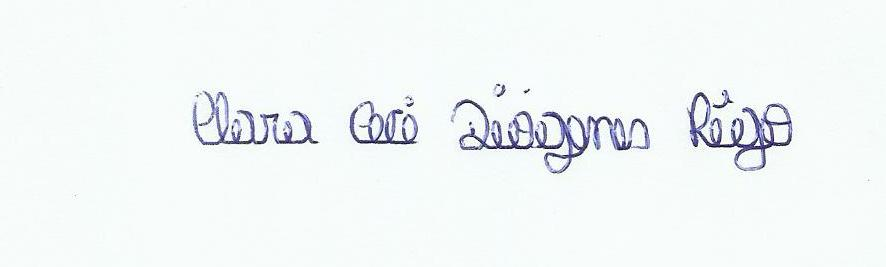 Clara Coró Diógenes Rêgo